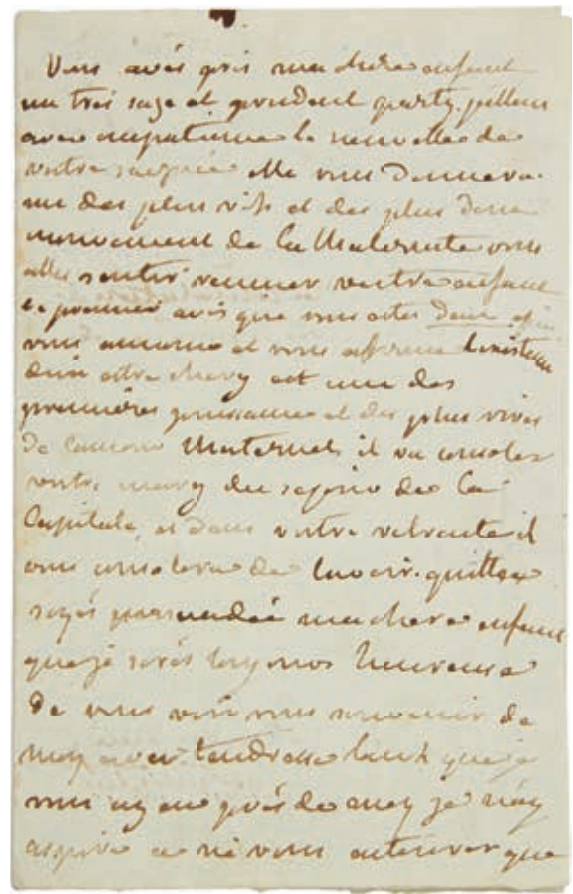 Vous avés pris ma chere enfant
un tres sage et prudent party. j'attens
avec impatience la nouvelle de
votre elle vous donnera
un des plus vifs et des plus doux
mouvement de la Maternité vous
alles sentir remuer votre enfant
ce premier avis que vous estes deux
vous annonce et vous affirme
d'un estre chery est une des
premieres jouissance et des plus vives
de l'amour Maternel, il va consoler
votre mary du sejour de la
Capitale, et dans votre retraite il
vous consolera de lavoir quittée
soyés persuadée ma chere enfant
que je serés toujours heureuse
de vous voir vous souvenir de
moy avec tendresse tant que je
vous ay eue près de moy je n'ay
aspiré a ne vous que